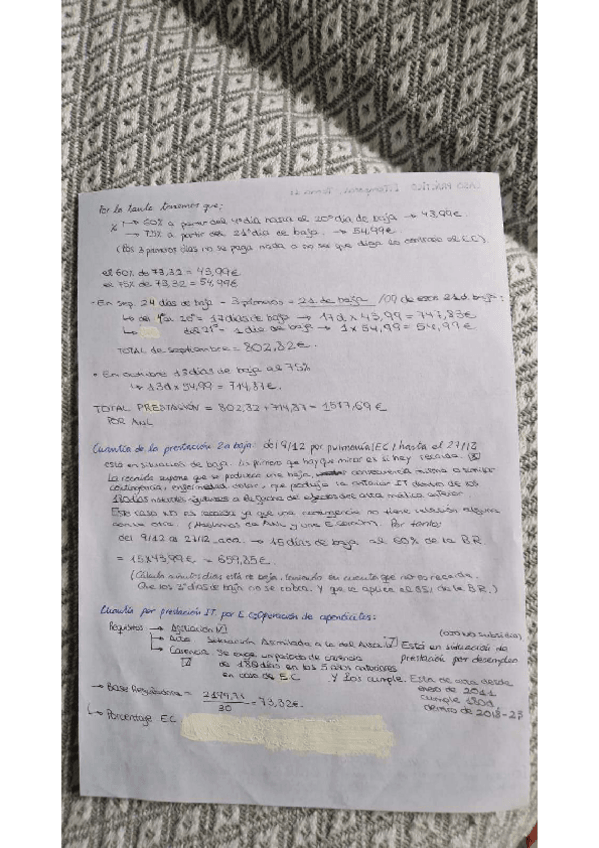 Por lo tanto tenemos que:
% → 60% a partir del 4º día hasta el 20º día de baja → 43,99€.
→ 75% a partir del 21º día de baja. → 54,99€.
(los 3 primeros días no se paga nada a no ser que diga lo contrario el CC).
el 60% de 73,32 = 43,99€
el 75% de 73,32 = 54,99€
- En sep. 24 días de baja - 3 primeros = 21 de baja /09 de esos 21 d. baja:
↳ del 4º al 20º = 17 días de baja → 17d x 43,99 = 747,83€
↳ del 21º = 1 día de baja → 1 x 54,99 = 54,99€
TOTAL de septiembre = 802,82€.
• En octubre 13 días de baja al 75%
↳ 13d x 54,99 = 714,87€.
TOTAL PRESTACIÓN = 802,82 + 714,87 = 1517,69€
POR ANL
Cuantía de la prestación 2a baja: del 9/12 por pulmonía (EC) hasta el 27/12
está en situación de baja. Lo primero que hay que mirar es si hay recaída.
La recaída supone que se produzca una baja, consecuencia misma o similar
contingencia, enfermedad, que produjo la anterior IT dentro de los
180 días naturales siguientes a la fecha de efectos del alta médica anterior.
Este caso no es recaída ya que una contingencia no tiene relación alguna
con la otra. (Hablamos de ANL y una E común). Por tanto:
del 9/12 al 27/12 → 15 días de baja al 60% de la B.R
= 15x43,99€ = 659,85€.
(Calcula cuantos días está de baja, teniendo en cuenta que no es recaída.
Que los 3 días de baja no se cobra. Y que se aplica el % de la B.R.)
Cuantía por prestación IT por E C Operación de apendicitis:
Requisitos → Afiliación
→ Alta Situación Asimilada a la del Alta. Está en situación de
→ Carencia. Se exige un período de carencia prestación por desempleo
de 180 días en los 5 años anteriores
en caso de E.C Y los cumple. Está de alta desde
enero de 2011.
→ Base Reguladora = 2199,71 / 30 = 73,32€. cumple 180d
dentro de 2018-23
↳ Porcentaje EC